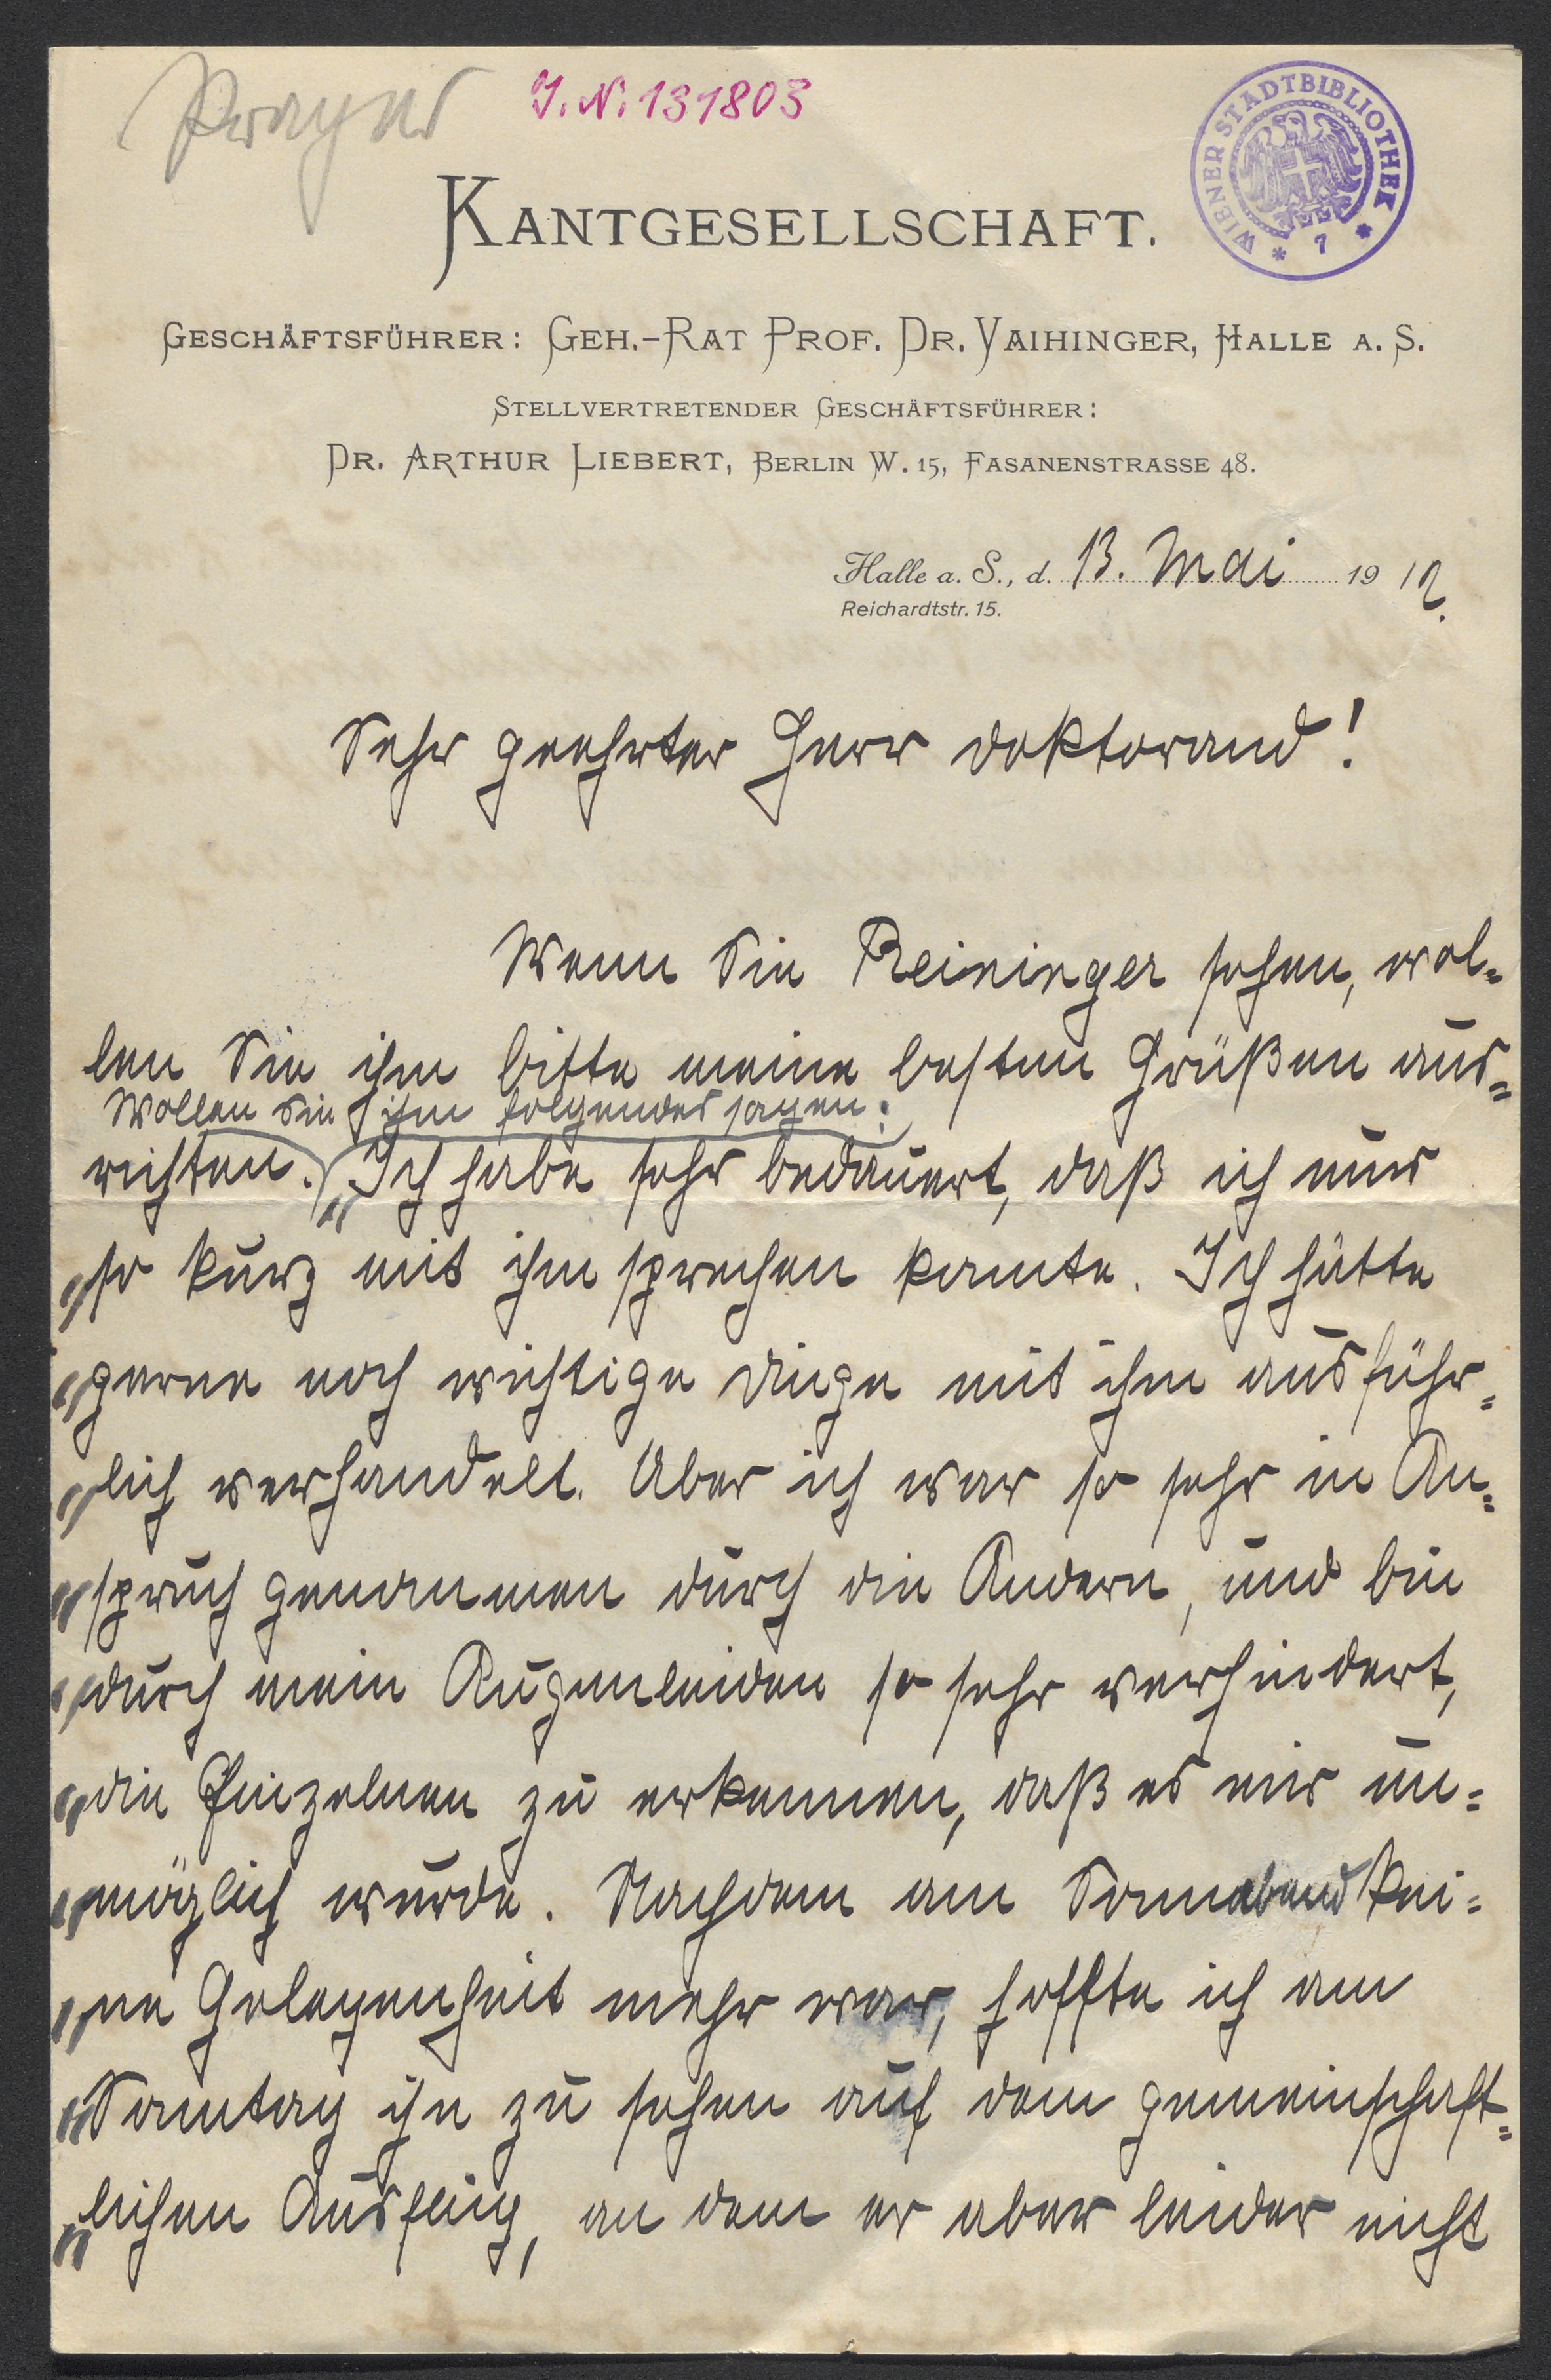 J. N. 131803
WIENER STADTBIBLIOTHEK * 7 *
KANTGESELLSCHAFT.
GESCHÄFTSFÜHRER: GEH.-RAT PROF. DR. VAIHINGER, HALLE A. S.
STELLVERTRETENDER GESCHÄFTSFÜHRER:
DR. ARTHUR LIEBERT, BERLIN W. 15, FASANENSTRASSE 48.
Halle a. S., d. 13. Mai 1912.
Reichardtstr. 15.
Sehr geehrter Herr Doktorand!
Wenn Sie Reininger sehen, wol=
len Sie ihm bitte meine besten Grüßen aus=
Wollen Sie ihm folgendes sagen:
richten. "Ich habe sehr bedauert, daß ich nur
"so kurz mit ihm sprechen konnte. Ich hätte
"gerne noch wichtige Dinge mit ihm ausführ=
"lich verhandelt. Aber ich war so sehr in An=
"spruch genommen durch die Andern, und bin
"durch mein Augenleiden so sehr verhindert,
"die Einzelnen zu erkennen, daß es mir un=
"möglich wurde. Nachdem am Sonnabend kei=
"ne Gelegenheit mehr war, hoffte ich am
"Sonntag ihn zu sehen auf dem gemeinschaft=
"lichen Ausflug, an dem er aber leider nicht